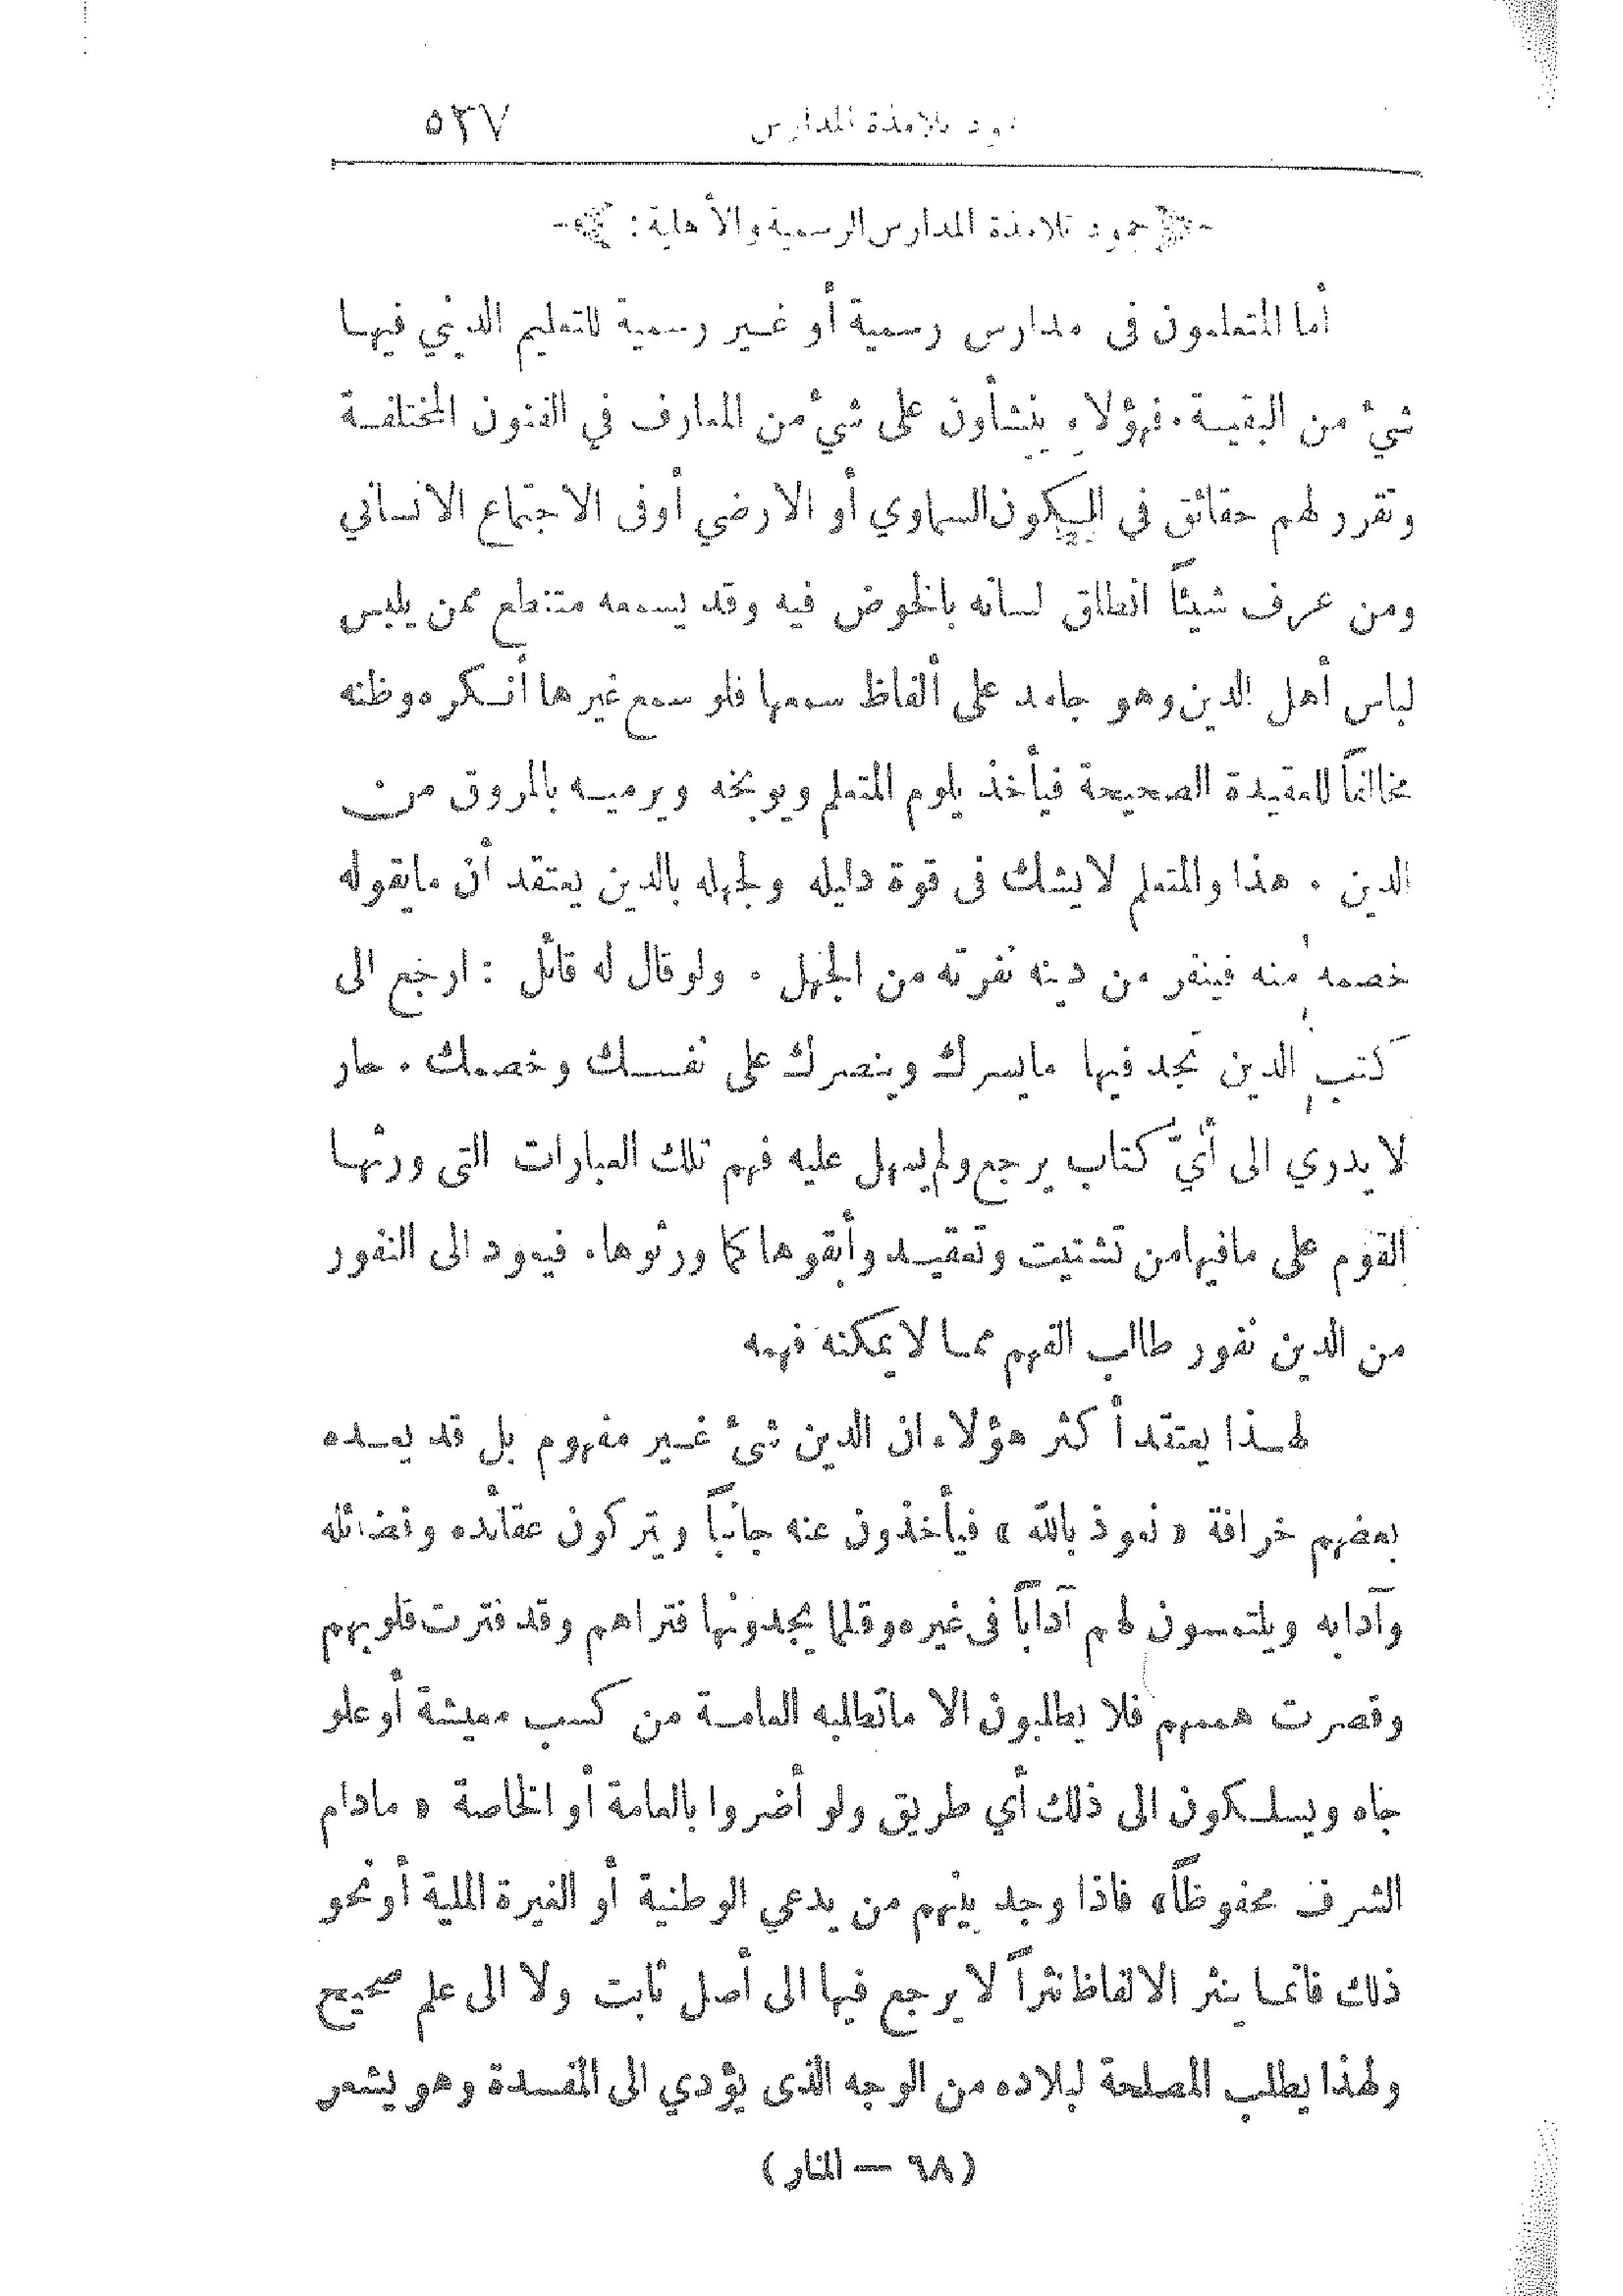 جمود تلامذة المدارس ٥٣٧
جمود تلامذة المدارس الرسمية والأهلية :
أما المتعلمون فى مدارس رسمية أو غير رسمية للتعليم الديني فيها
شيءٌ من البقية . فهؤلاء ينشأون على شيءٌ من المعارف في الفنون المختلفة
وتقرر لهم حقائق في الكون السماوي أو الارضي أوفى الاجتماع الانساني
ومن عرف شيئاً انطلق لسانه بالخوض فيه وقد يسمعه متنطع ممن يلبس
لباس أهل الدين وهو جامد على ألفاظ سمعها فلو سمع غيرها أنكره وظنه
مخالفاً للعقيدة الصحيحة فيأخذ يلوم المتعلم ويوبخه ويرميه بالمروق من
الدين . هذا والمتعلم لايشك فى قوة دليله ولجهله بالدين يعتقد أن مايقوله
خصمه منه فينفر من دينه نفرته من الجهل . ولو قال له قائل : ارجع الى
كتب الدين تجد فيها مايسرك وينصرك على نفسك وخصمك . حار
لا يدري الى أيّ كتاب يرجع ولم يسهل عليه فهم تلك العبارات التى ورثها
القوم على مافيها من تشتيت وتعقيد وأبقوها كما ورثوها. فيعود الى النفور
من الدين نفور طالب الفهم مما لا يمكنه فهمه
لهذا يعتقد أكثر هؤلاء ان الدين شئ غير مفهوم بل قد يعده
بعضهم خرافة « نعوذ بالله » فيأخذون عنه جانباً ويتركون عقائده وفضائله
وآدابه ويلتمسون لهم آداباً فى غيره وقلما يجدونها فتراهم وقد فترت قلوبهم
وقصرت هممهم فلا يطلبون الا ماتطلبه العامة من كسب معيشة أو علو
جاه ويسلكون الى ذلك أي طريق ولو أضروا بالعامة أو الخاصة « مادام
الشرف محفوظاً» فاذا وجد بينهم من يدعي الوطنية أو الغيرة الملية أو نحو
ذلك فانما ينثر الالفاظ نثراً لا يرجع فيها الى أصل ثابت ولا الى علم صحيح
ولهذا يطلب المصلحة لبلاده من الوجه الذى يؤدي الى المفسدة وهو يشعر
( ٦٨ — المنار )